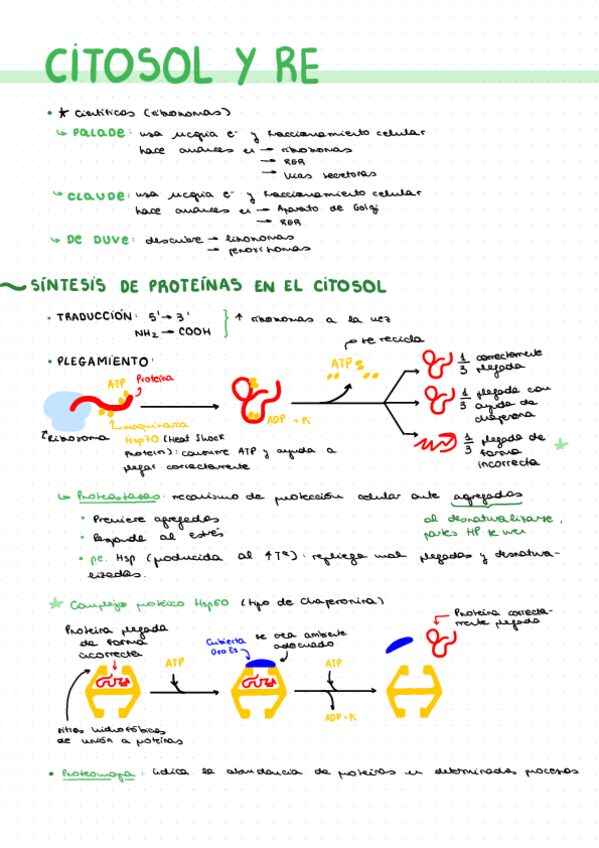 CITOSOL Y RE
• * Científicos (ribosomas)
↳ PALADE: usa mcqpia e⁻ y fraccionamiento celular
hace avances en → ribosomas
→ RER
→ Vías secretoras
↳ CLAUDE: usa mcqpia e⁻ y fraccionamiento celular
hace avances en → Aparato de Golgi
→ RER
↳ DE DUVE: descubre → lisosomas
→ peroxisomas
~ SÍNTESIS DE PROTEÍNAS EN EL CITOSOL
• TRADUCCIÓN: 5' → 3'
NH₂ → COOH
↑ ribosomas a la vez
• PLEGAMIENTO:
se recicla
ATP
Proteína
ATP
Ribosoma
maquinaria
Hsp70 (Heat Shock
Protein): consume ATP y ayuda a
plegar correctamente
ADP + Pi
1/3 correctamente
plegada
1/3 plegada con
ayuda de
chaperona
1/3 plegada de
forma
incorrecta
↳ Proteostasis: mecanismo de protección celular ante agregados
• Previene agregados
• Responde al estrés
• pe. Hsp (producida al ↑Tª): repliega mal plegadas y desnatura-
lizadas.
al desnaturalizarse,
partes HP se ven
* Complejo proteico Hsp60 (tipo de chaperonina)
Proteína plegada
de forma
incorrecta
ATP
Cubierta
GroES
se crea ambiente
adecuado
ATP
ADP + Pi
Proteína correcta-
mente plegada
sitios hidrofóbicos
de unión a proteínas
• Proteomapa: indica la abundancia de proteínas en determinados procesos